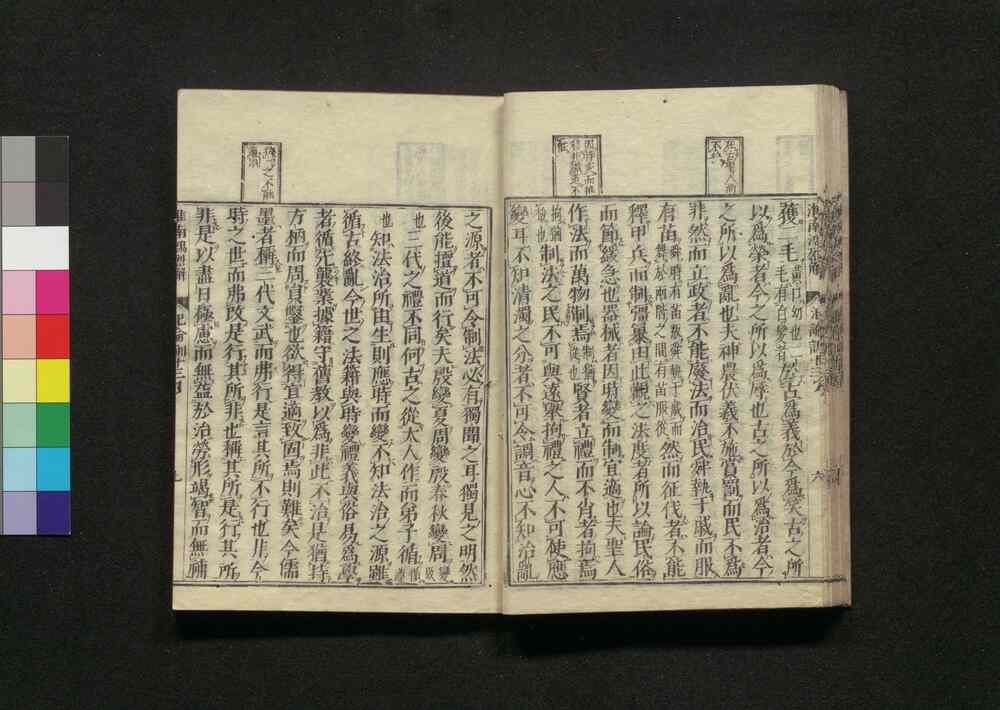 獲二毛於古爲義於今爲笑古之所
以爲榮者今之所以爲辱也古之所以爲治者今
之所以爲亂也夫神農伏羲不施賞罰而民不爲
非然而立政者不能廢法而治民舜執干戚而服
有苗然而征伐者不能
釋甲兵而制彊暴由此觀之法度者所以論民俗
而節緩急也器械者因時變而制宜適也夫聖人
作法而萬物制焉賢者立禮而不肖者拘焉
制法之民不可與遠擧拘禮之人不可使應
變耳不知淸濁之分者不可令調音心不知治亂
之源者不可令制法必有獨聞之耳獨見之明然
後能擅道而行矣夫殷變夏周變殷春秋變周
三代之禮不同何古之從大人作而弟子循
知法治所由生則應時而變不知法治之源雖
循古終亂今世之法籍與時變禮義與俗易爲學
者循先襲業據籍守舊敎以爲非此不治是猶持
方枘而周員鑿也欲得宜適致固焉則難矣今儒
墨者稱三代文武而弗行是言其所不行也非今
時之世而弗改是行其所非也稱其所是行其所
非是以盡日極慮而無益於治勞形竭智而無補